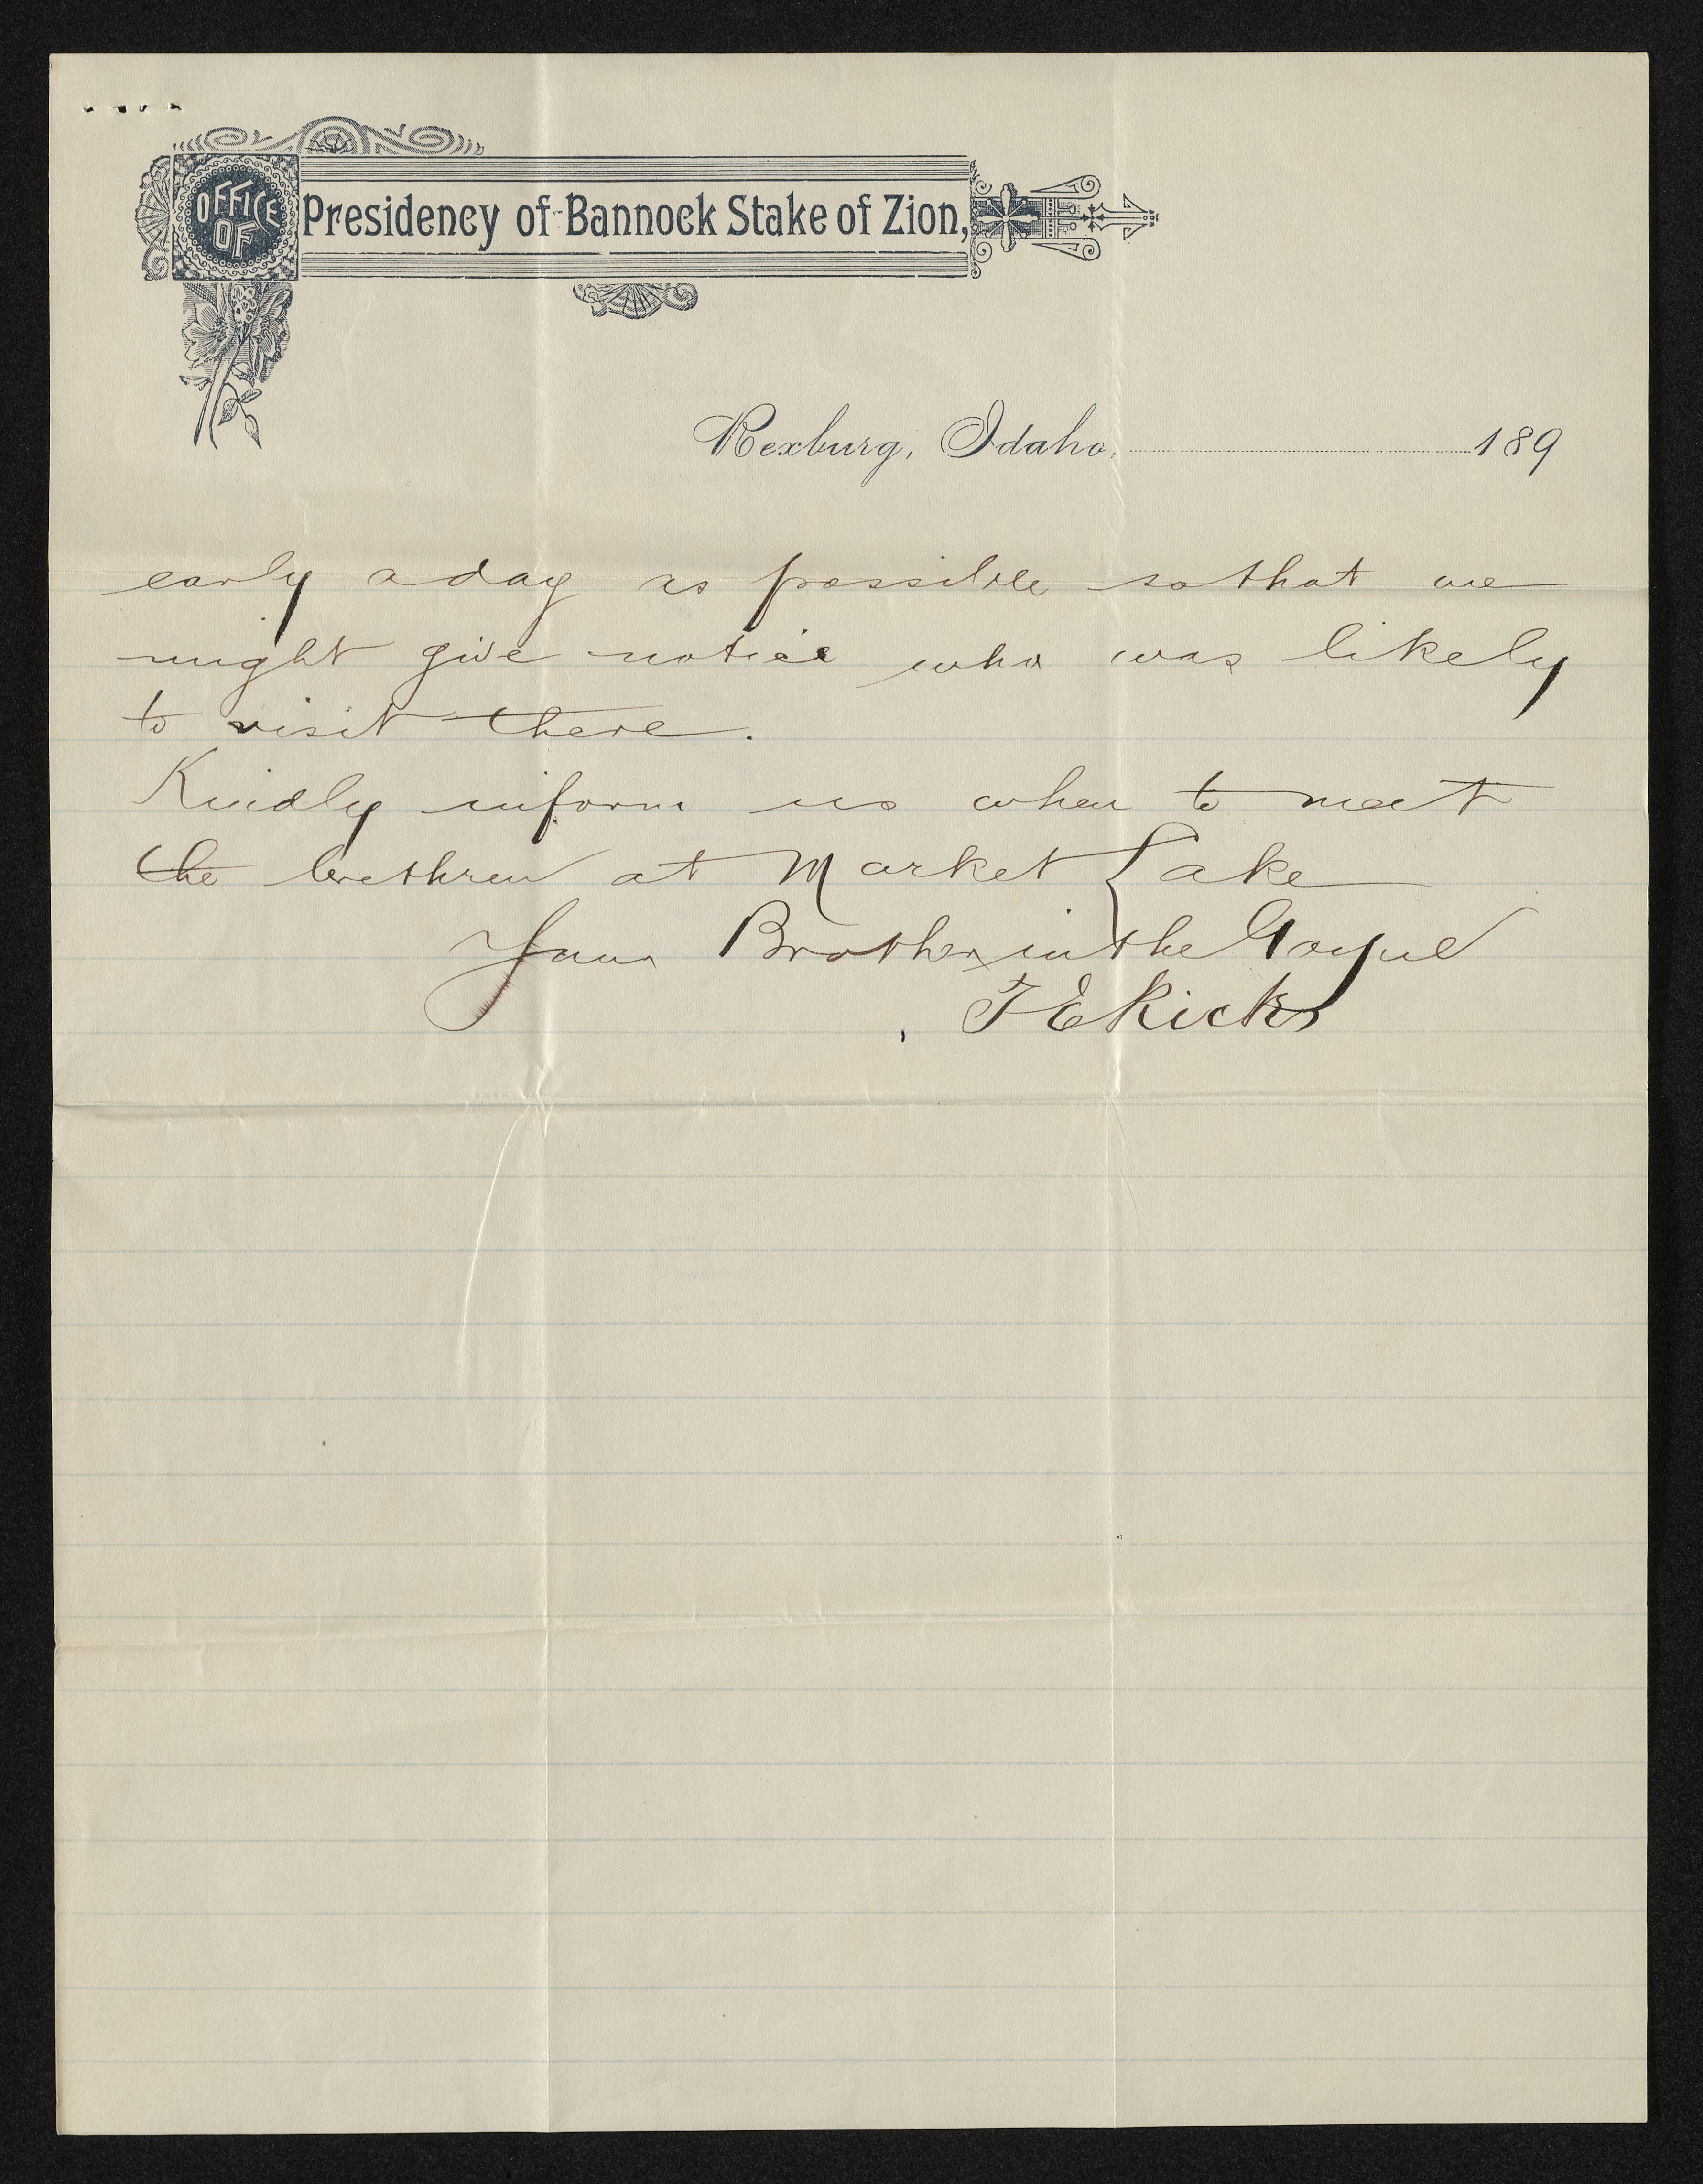 OFFICE OF
Presidency of Bannock Stake of Zion,
Rexburg, Idaho, 189
early a day as possible so that we
might give notice who was likely
to visit there.
Kindly inform us when to meet
the brethren at Market Lake
Your Brother in the Gospel
T E Ricks